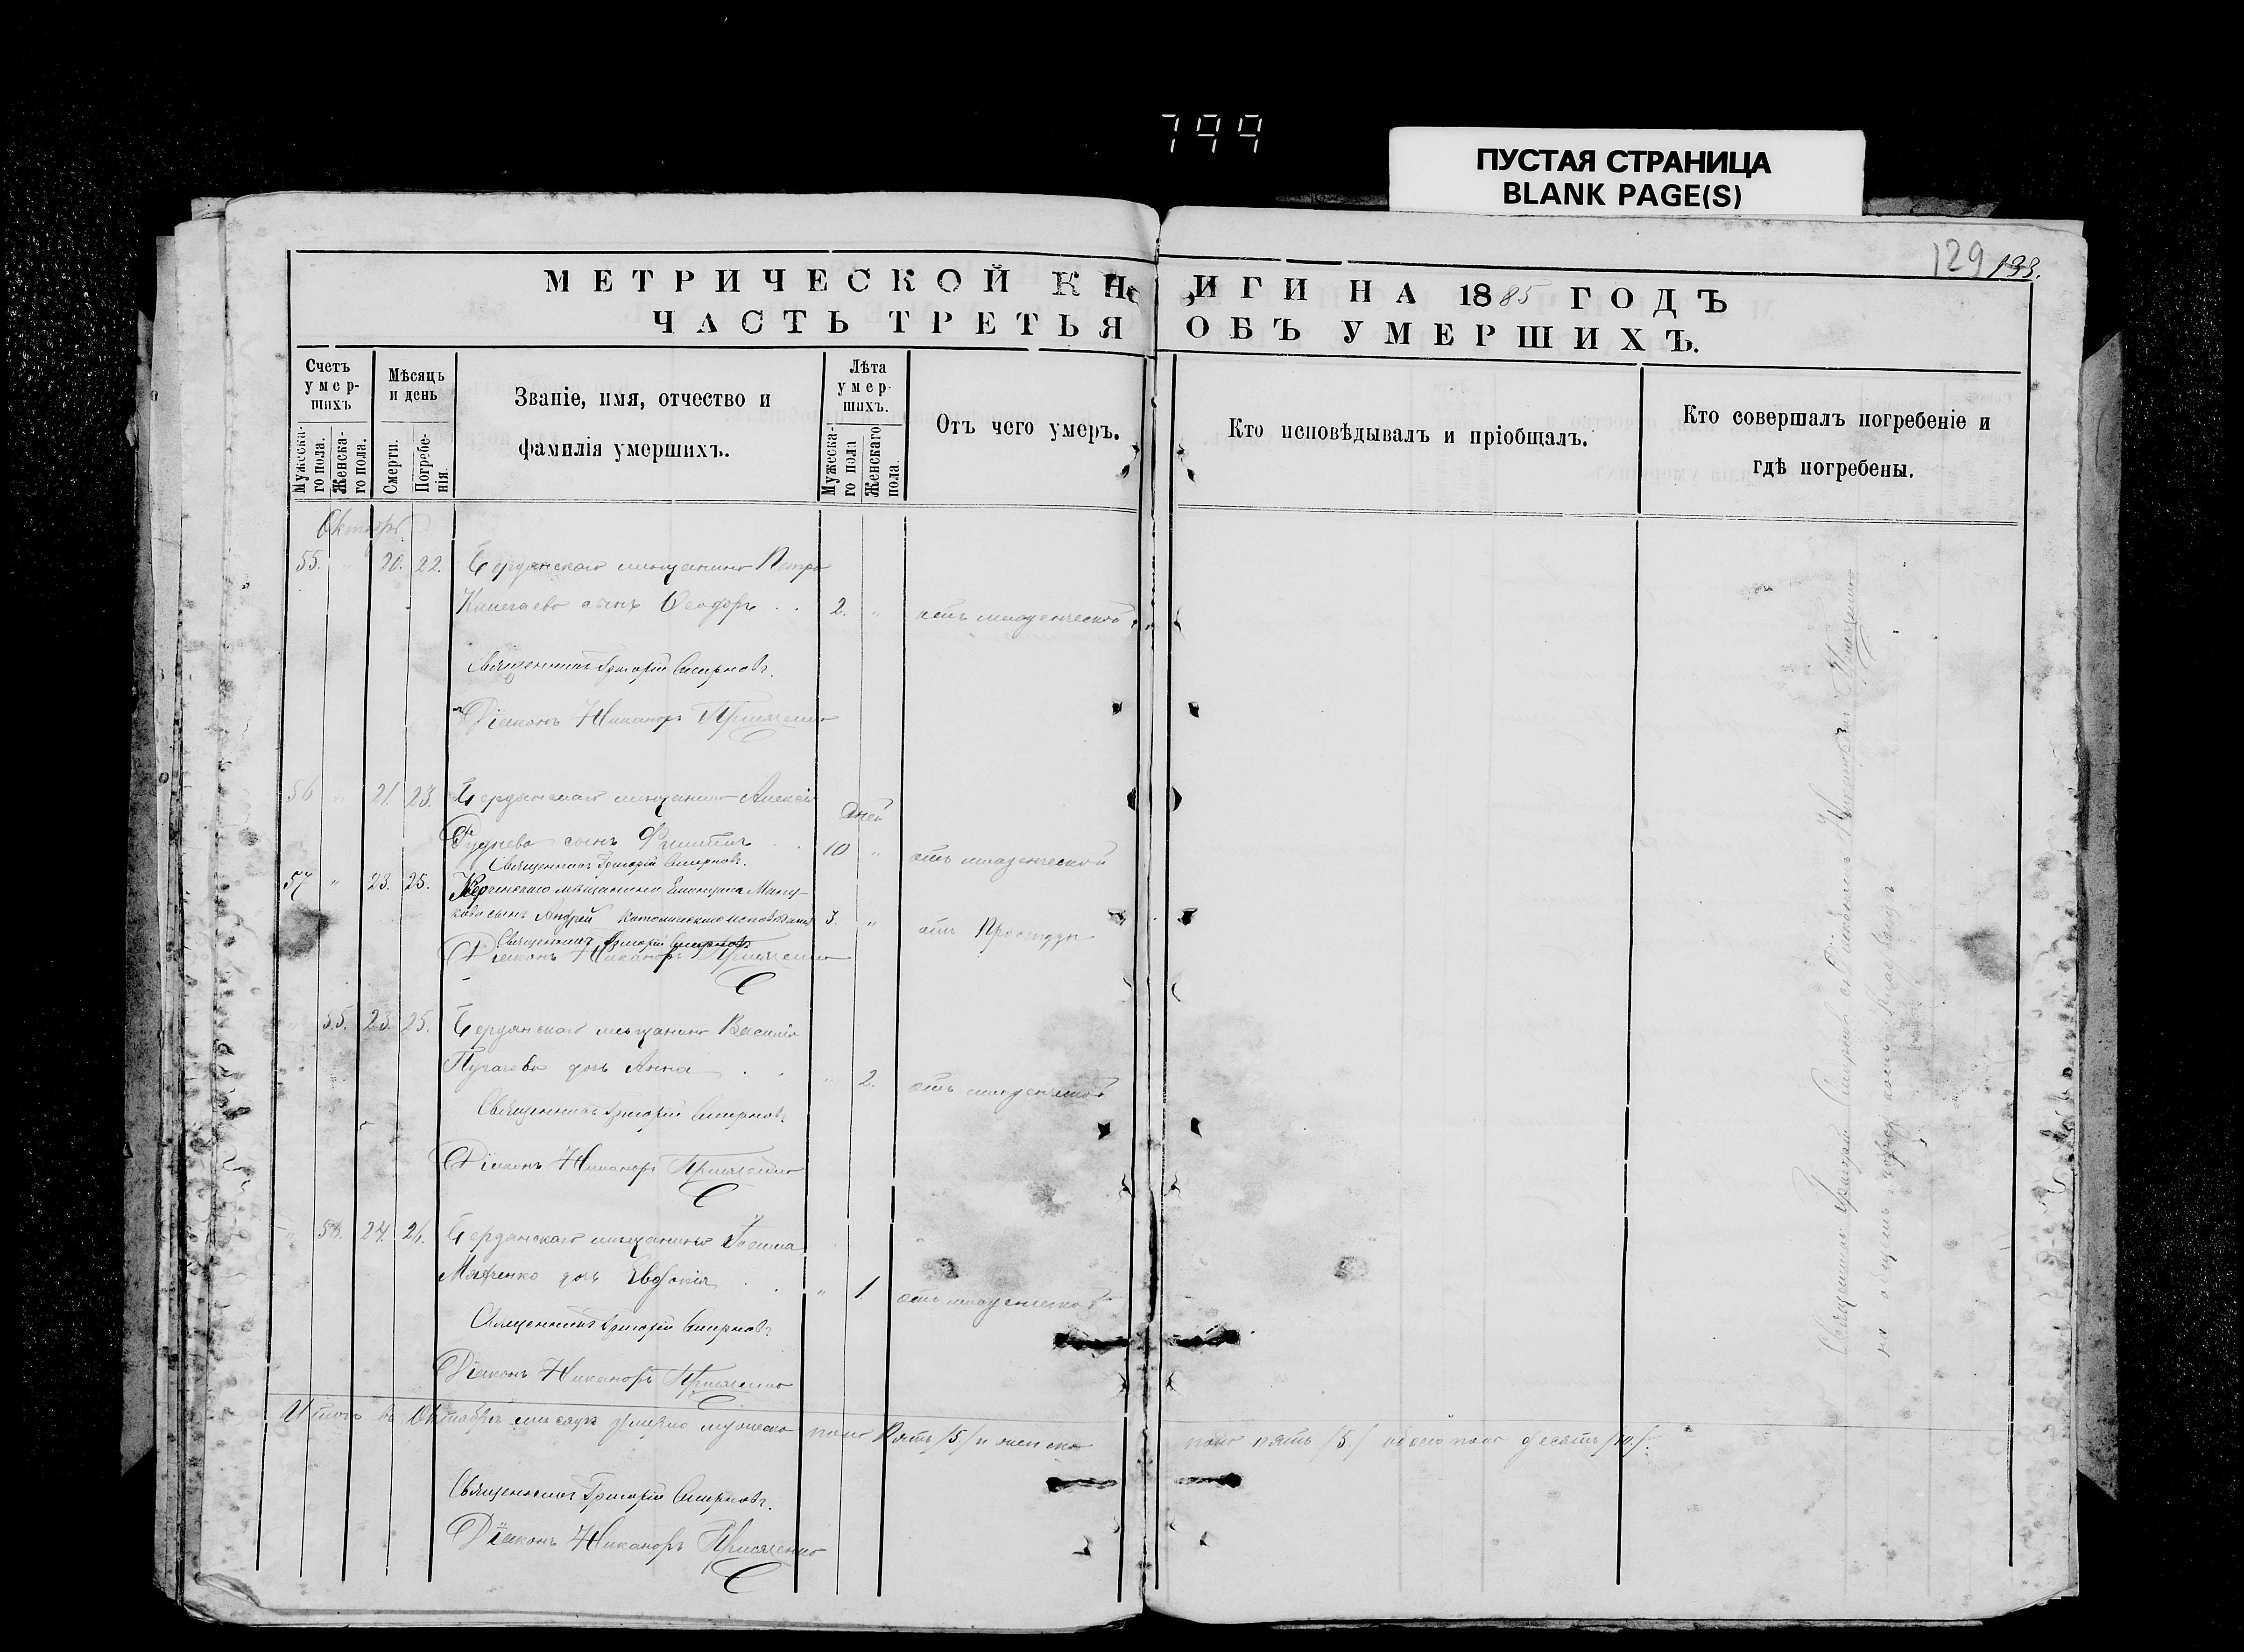 799
ПУСТАЯ СТРАНИЦА
BLANK PAGE(S)
129 133.
МЕТРИЧЕСКОЙ КНИГИ НА 1885 ГОДЪ
ЧАСТЬ ТРЕТЬЯ ОБЪ УМЕРШИХЪ.
Счетъ умер-шихъ
Мужеска-го пола.
Женска-го пола.
Мѣсяцъ и день
Смерти.
Погребе-нія.
Званіе, имя, отчество и
фамилія умершихъ.
Лѣта умер-шихъ.
Мужеска-го пола
Женскаго пола.
Отъ чего умеръ.
Кто исповѣдывалъ и пріобщалъ.
Кто совершалъ погребеніе и
гдѣ погребены.
Октябрь.
55. " 20. 22. Бердянскаго мѣщанина Петра
сынъ Ѳеодоръ . . 2. " отъ младенческой
Священникъ Григорій Смирновъ.
Діаконъ Никаноръ
56 " 21. 23. Бердянскаго мѣщанина Алексія
дней
Руднева сынъ Филиппъ . 10 " отъ младенческой
Священникъ Григорій Смирновъ.
57 " 23. 25. Керченскаго мѣщанина
сынъ Андрей католическаго исповѣданія 3. " отъ Простуды
Священникъ Григорій Смирновъ
Діаконъ Никаноръ
" 55. 23. 25. Бердянскаго мѣщанина Василія
Пугачова дочь Анна . . " 2. отъ младенческой
Священникъ Григорій Смирновъ
Діаконъ Никаноръ
" 56. 24. 26. Бердянскаго мѣщанина
дочь Евдокія . . " 1. отъ младенческой
Священникъ Григорій Смирновъ
Діаконъ Никаноръ
Итого въ Октябрѣ мѣсяцѣ умерло мужеска пола Пять /5/ и женска пола пять /5/ обоего пола десять /10/.
Священникъ Григорій Смирновъ.
Діаконъ Никаноръ
Священникъ Григорій Смирновъ съ Діакономъ Никаноромъ
на общемъ городскомъ кладбищѣ